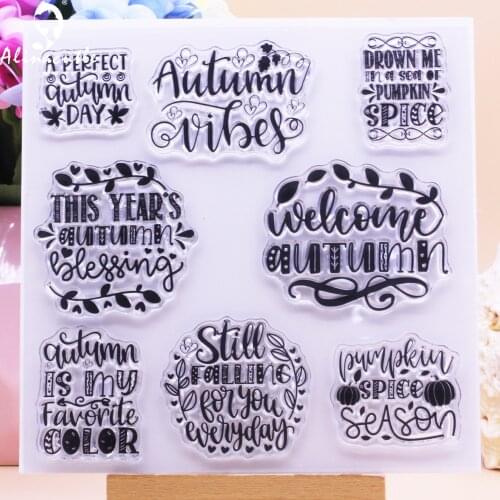 A PERFECT
autumn
DAY
Autumn
vibes
DROWN ME
in a sea OF
PUMPKIN
SPICE
THIS YEAR'S
autumn
blessing
welcome
autumn
autumn
IS my
Favorite
COLOR
Still
FALLING
FOR YOU
everyday
pumpkin
SPICE
SEASON